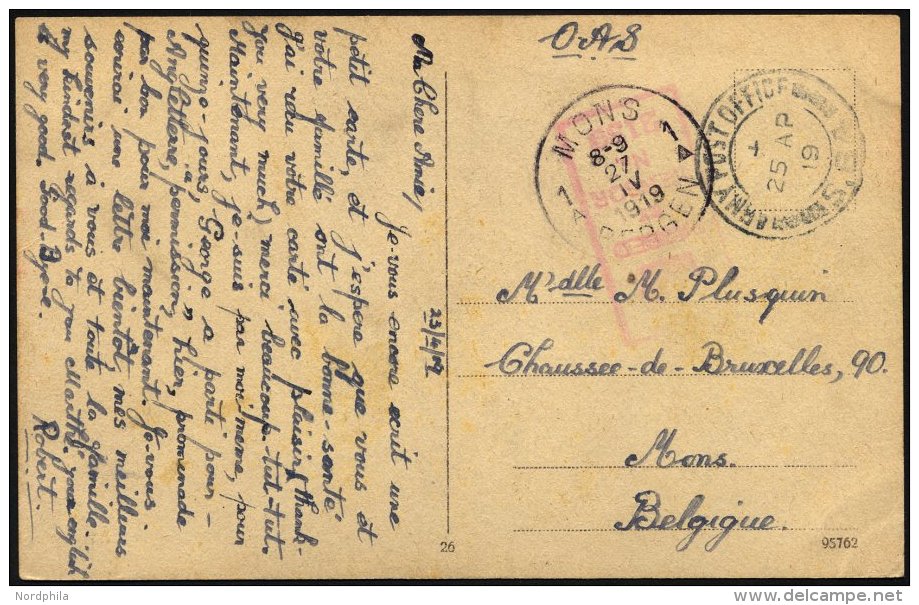 Ma Chere Amie,
23/4/19
Je-vous encore ecrit une
petit carte, et j'espere que vous et
votre famille sont la bonne-sante
J'ai reçu votre carte avec plaisir, (thank-
you very much,) merci beaucoup-tut-tut.
Maintenant, je-suis par moi meme, pour
quinze-jours, George a parti pour-
Angleterre, "permission", hier, promenade
pas bon pour moi maintenant. Je-vous
courirai une lettre bientot, mes meilleurs
souvenirs à vous et toute la famille.
my kindest regards to you Marthe, your english
is very good. Good Bye.
Robert.
O.A.S
MONS
1 1
8-9
27
IV
1919
BERGEN
ARMY POST OFFICE
25 AP
19
S.
M'dlle M. Plusquin
Chaussee-de-Bruxelles, 90.
Mons.
Belgique.
26
95762
Nordphila
delcampe.net